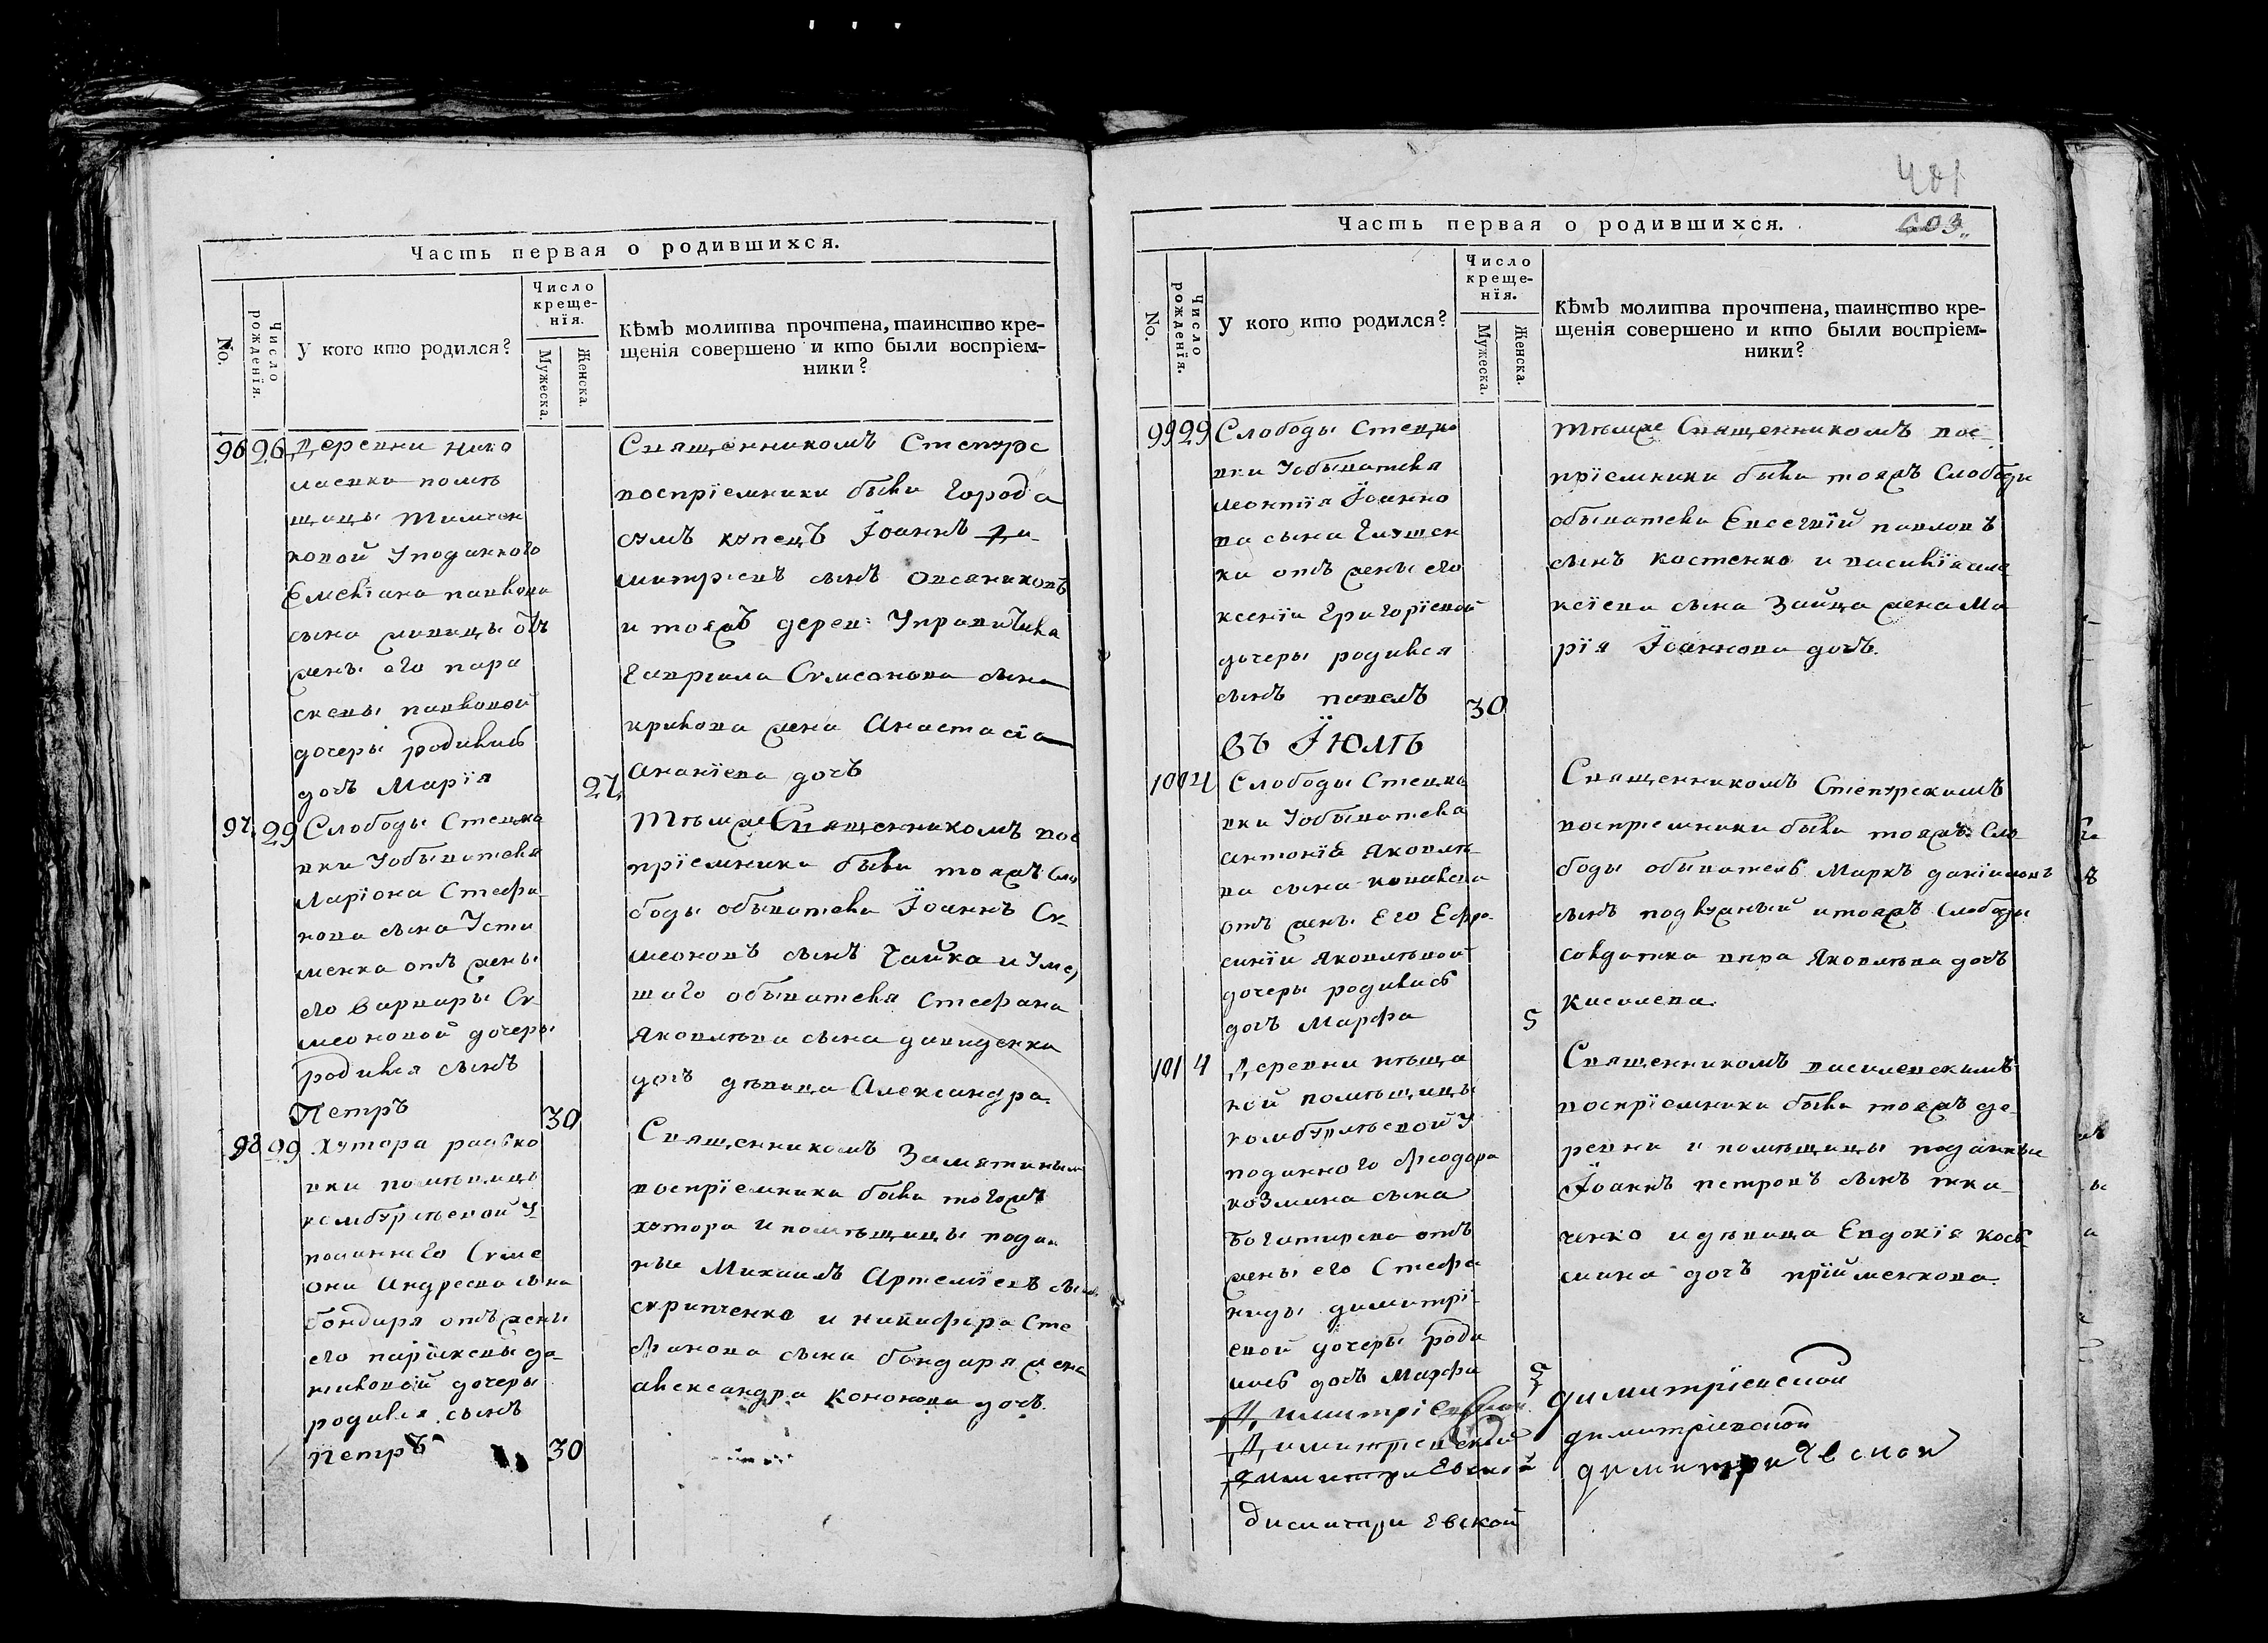 Часть первая о родившихся.
No.
Число рожденїя.
у кого кто родился?
Число креще-
нїя.
Мужеска.
Женска.
Кѣмъ молитва прочтена, таинство кре-
щенія совершено и кто были воспріем-
ники?
96 26 Деревни Нико
лаевки помѣ
щицы Тимчен
ковой Уподанного
Емельяна павлова
сына отъ
жены его пара
скевы павловой
дочеры родилась
дочь Марїя 27
Священникомъ
воспрїемники были города
сумъ купецъ Їоаннъ Ди-
митрїевъ сынъ Овсяниковъ
и тояжъ дерев: Управителя
Гаврїила Сумеонова сына
крикова жена Анастасїа
Ананїева дочь
97 29 Слободы Стецко
вки Уобывателя
Ларїона Стефа-
нова сына Усти
менка отъ жены
его Варвары Су-
меоновой дочеры
родился сынъ
Петръ 30
Тѣмже Священникомъ вос
прїемника были тояжъ сло
боды обыватели Їоаннъ Су-
меоновъ сынъ Чайка и Уме,
шаго обывателя Стефана
Яковлѣва сына давиденка
дочь дѣвица Александра.
98 29 Хутора
вки помѣщицы
У
поданного Суме
она Андреева сына
бондаря отъ жены
его парaскевы да-
нииловой дочеры
родился сынъ
петръ 30
Священникомъ Замятиным
воспрїемника были тогожъ
хутора и помѣщицы подан
ные Михаилъ Артемїевъ сынъ
скрипченко и никифора Сте
фанова сына бондаря жена
александра Кононова дочь.
401
603
Часть первая о родившихся.
No.
Число рожденїя.
у кого кто родился?
Число креще-
нїя.
Мужеска.
Женска.
Кѣмъ молитва прочтена, таинство кре-
щенія совершено и кто были воспріем-
ники?
99 29 Слободы Стецко
вки Уобывателя
леонтїя Їоанно
ва сына
ки отъ жены его
ксенїи Григорїевой
дочеры родился
сынъ павелъ 30
Тѣмже Священникомъ вос-
прїемники были тояжъ Слободы
обыватели Евсегнїй павловъ
сынъ костенко и василїя але
ксїева сына Зайца жена Ма
рїя Їоаннова дочь.
въ Їюлѣ
100 4 Слободы Стецко
вки Уобывателя
антонїя Яковлѣ
ва сына ковалева
отъ жены Его Ефро
синїи Яковлѣвой
дочеры родилась
дочь Марфа 5
Священникомъ Степурскимъ
воспрїемники были тояжъ: Сло
боды обыватель Маркъ данїиловъ
сынъ итояжъ Слободы
солдатка вѣра Яковлѣва дочь
киселева.
101 4 Деревни пѣща
ной помѣщицы
У
поданного Феодора
козмина сына
богатырева отъ
жены его Стефа
ниды димитрї-
евой дочеры роди
лась дочь Марфа 5
Священникомъ василевскимъ
воспрїемники были тояжъ де-
ревни и помѣщицы поданные
Їоаннъ петровъ сынъ тка-
ченко и дѣвица Евдокїя кось-
мина дочь прїйменкова.
Димитрїевской
димитрїевской
Димитрїевской
димитрїевской
димитри Евской
димитриевской
димитри Евской